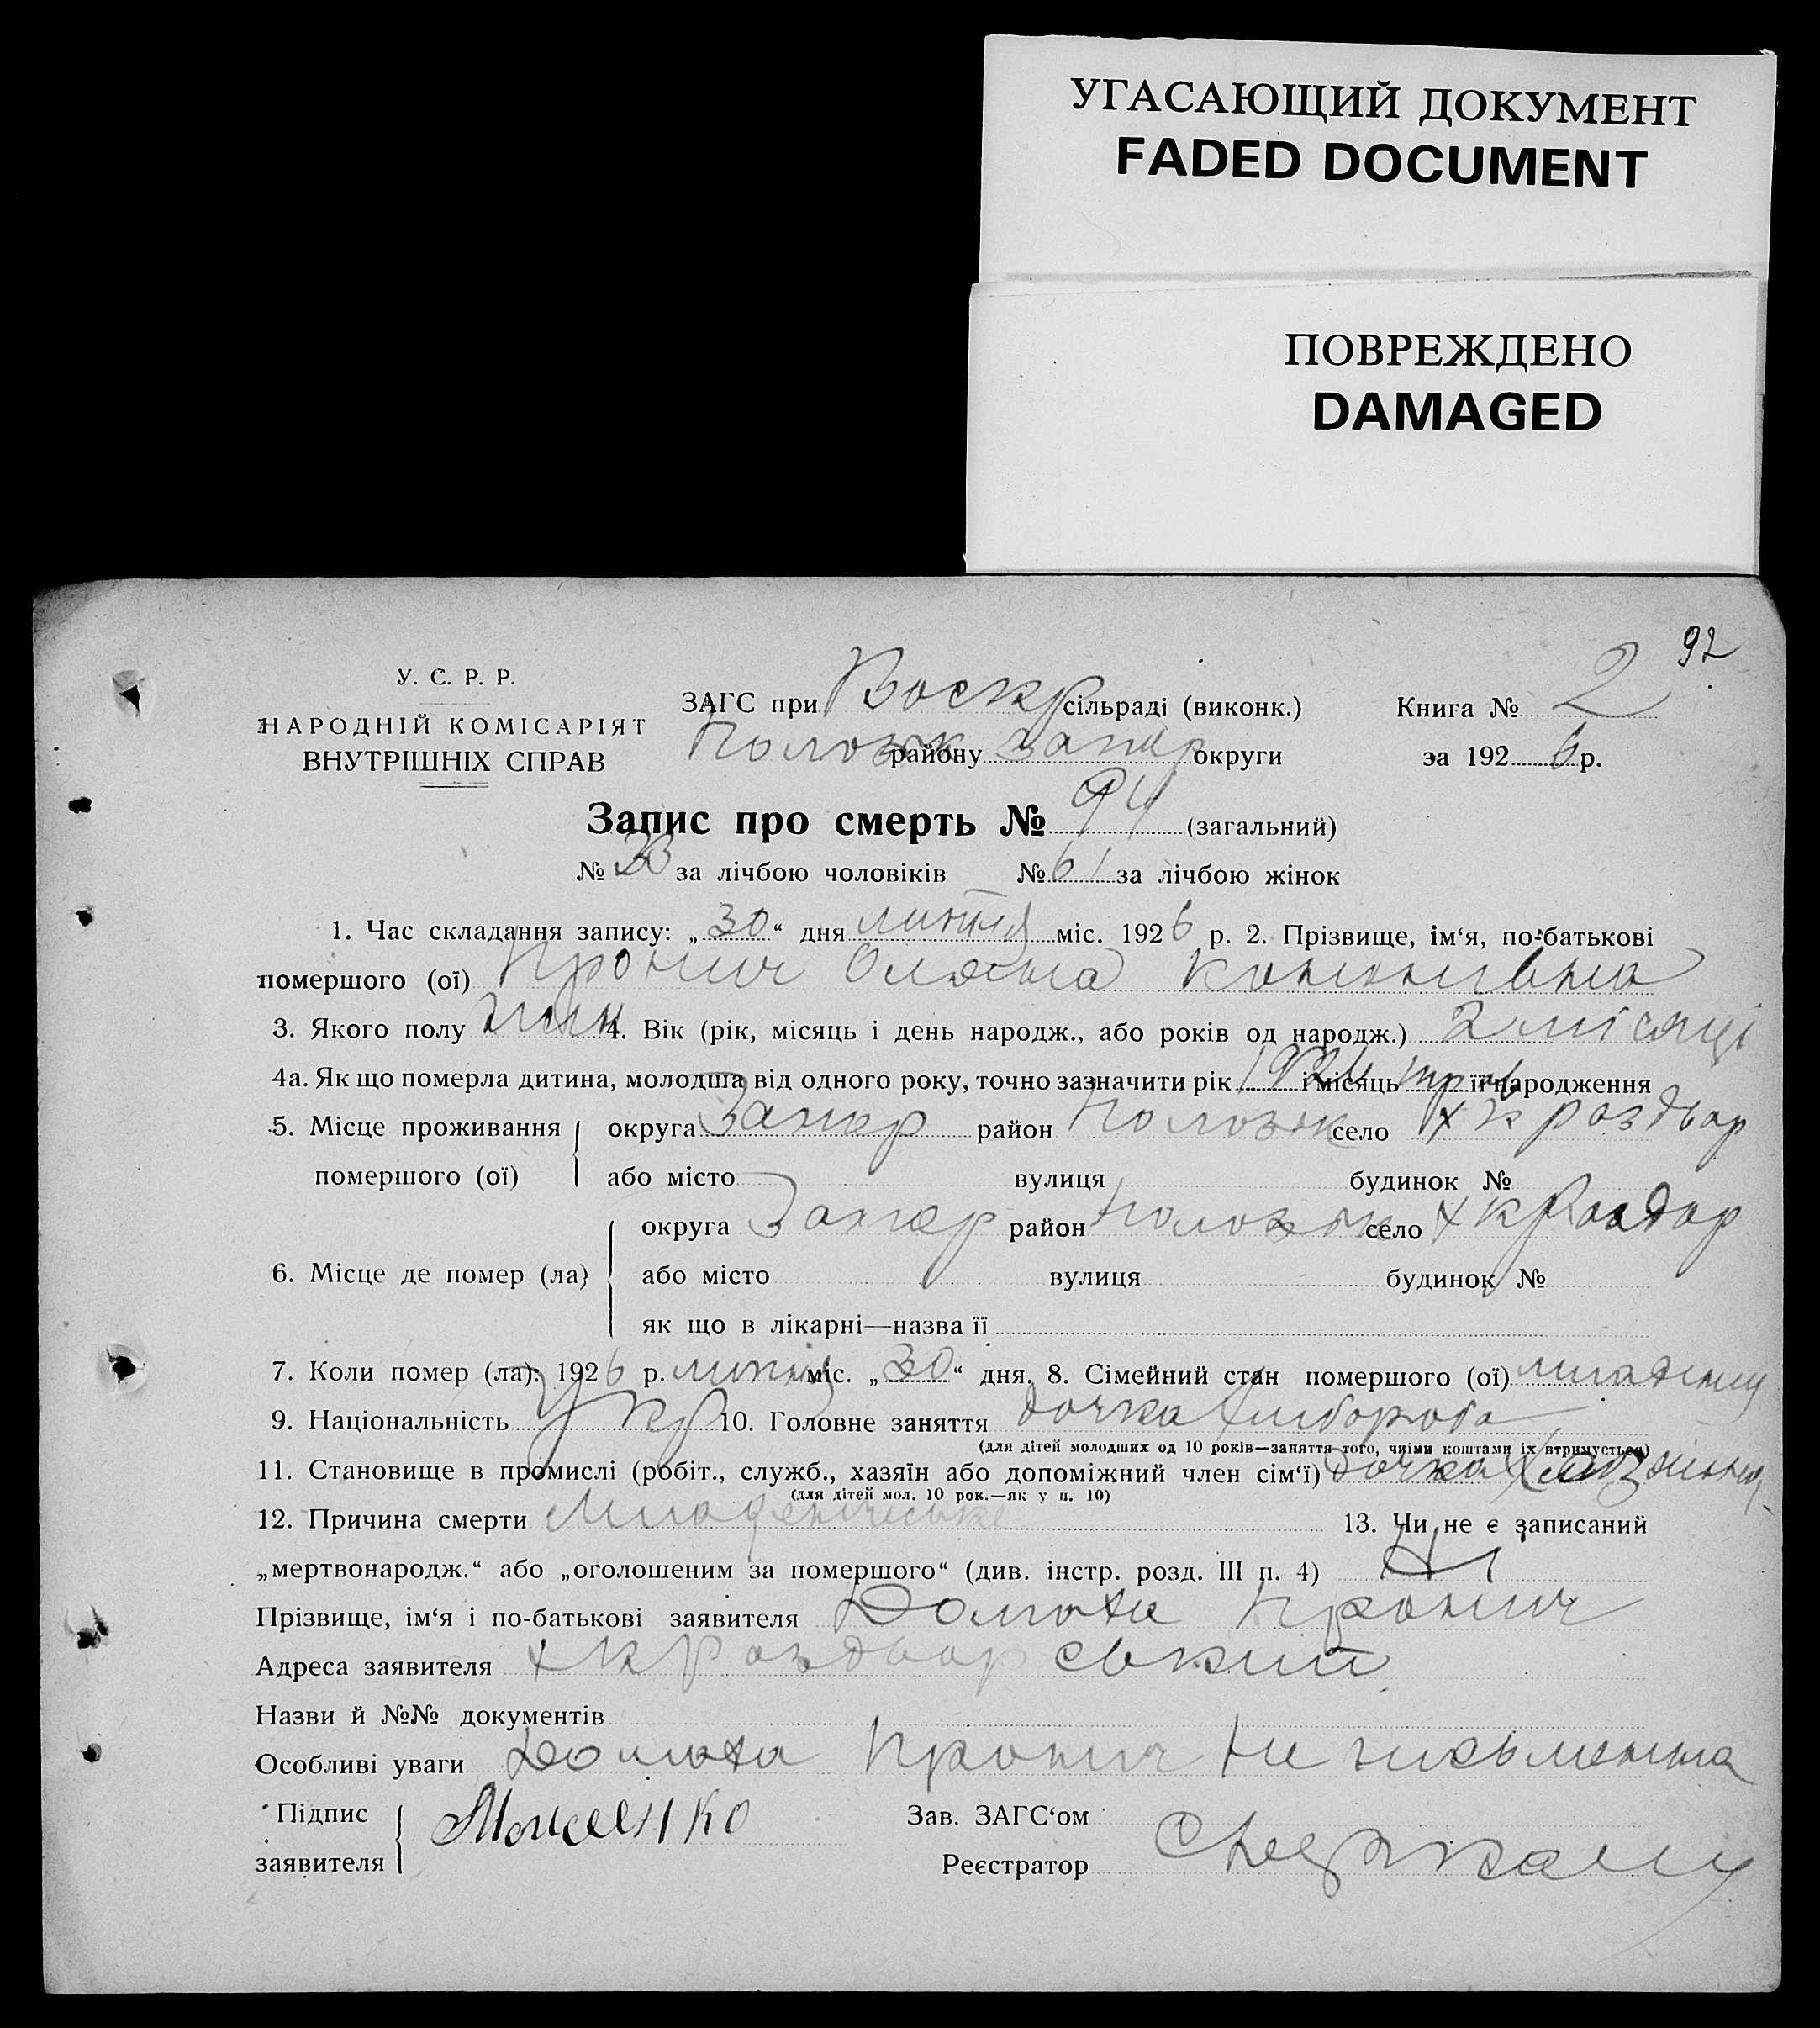 УГАСАЮЩИЙ ДОКУМЕНТ
FADED DOCUMENT
ПОВРЕЖДЕНО
DAMAGED
92
У. С. Р. Р.
НАРОДНІЙ КОМІСАРІЯТ
ВНУТРІШНІХ СПРАВ
ЗАГС при Воскр сільраді (виконк.) Книга № 2
Полозьк району Запор округи за 1926 р.
Запис про смерть № 94 (загальний)
№ 33 за лічбою чоловіків № 61 за лічбою жінок
1. Час складання запису: „30“ дня липня міс. 1926 р. 2. Прізвище, ім‘я, по-батькові
помершого (ої) Пронич Оляна
3. Якого полу жін 4. Вік (рік, місяць і день народж., або років од народж.) 2 місяці
4а. Як що померла дитина, молодша від одного року, точно зазначити рік 1926 і місяць трав її народження
5. Місце проживання помершого (ої) округа Запор район Полозьк село х к роздор
або місто вулиця будинок №
6. Місце де помер (ла) округа Запор район Полозьк село х к Роздор
або місто вулиця будинок №
як що в лікарні—назва її
7. Коли помер (ла): 1926 р. липня міс. „30“ дня. 8. Сімейний стан помершого (ої)
9. Національність Укр 10. Головне заняття дочка хлібороба
(для дітей молодших од 10 років—заняття того, чиїми коштами їх втримується)
11. Становище в промислі (робіт., служб., хазяїн або допоміжний член сім‘ї) дочка
(для дітей мол. 10 рок.—як у п. 10)
12. Причина смерти Младенческе 13. Чи не є записаний
„мертвонародж.“ або „оголошеним за помершого“ (див. інстр. розд. III п. 4) Ні
Прізвище, ім‘я і по-батькові заявителя Домаха Пронич
Адреса заявителя х к Роздорський
Назви й №№ документів
Особливі уваги Домаха Пронич не письменна
Підпис заявителя Зав. ЗАГС‘ом
Реєстратор